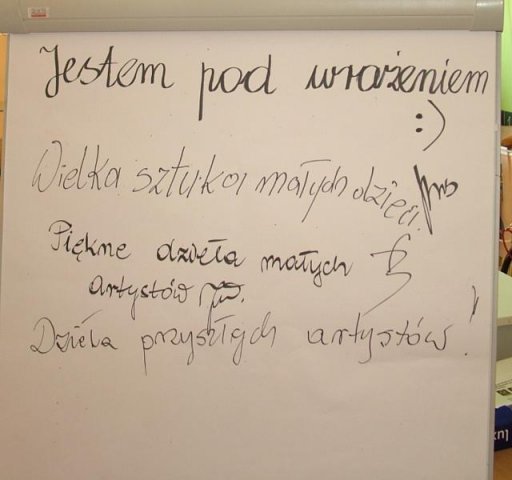 Jestem pod wrażeniem
:)
Wielka sztuka małych dzieci.
Piękne dzieła małych
artystów
Dzieła przyszłych artystów!